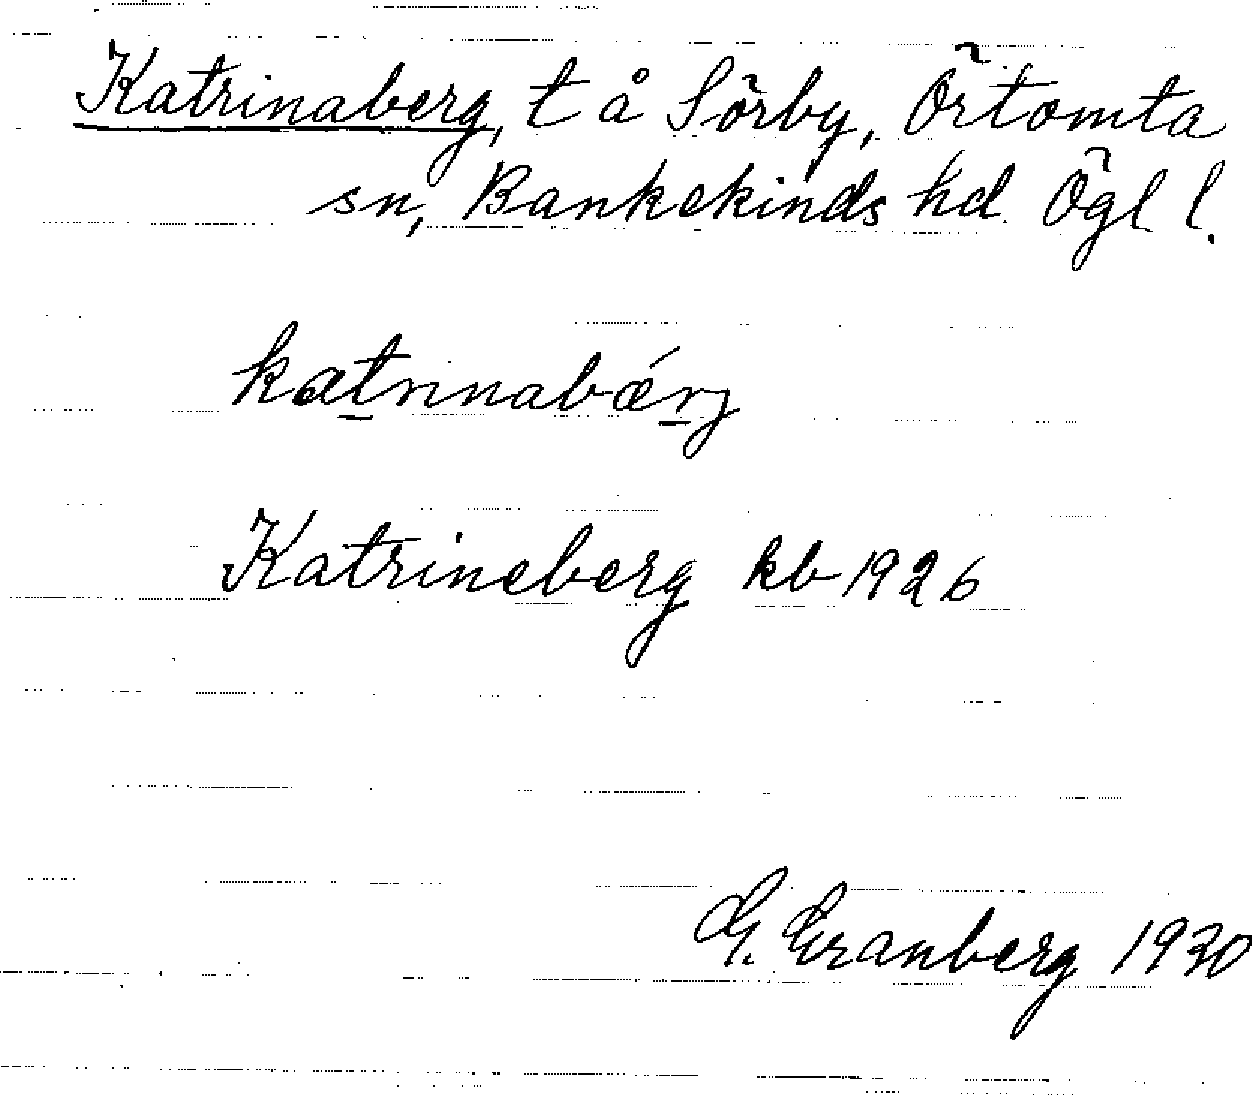 Katrinaberg, t å Sörby, Örtomta
sn, Bankekinds hd Ögl l.
katrinabǽrj
Katrineberg kb 1926
G. Granberg 1930